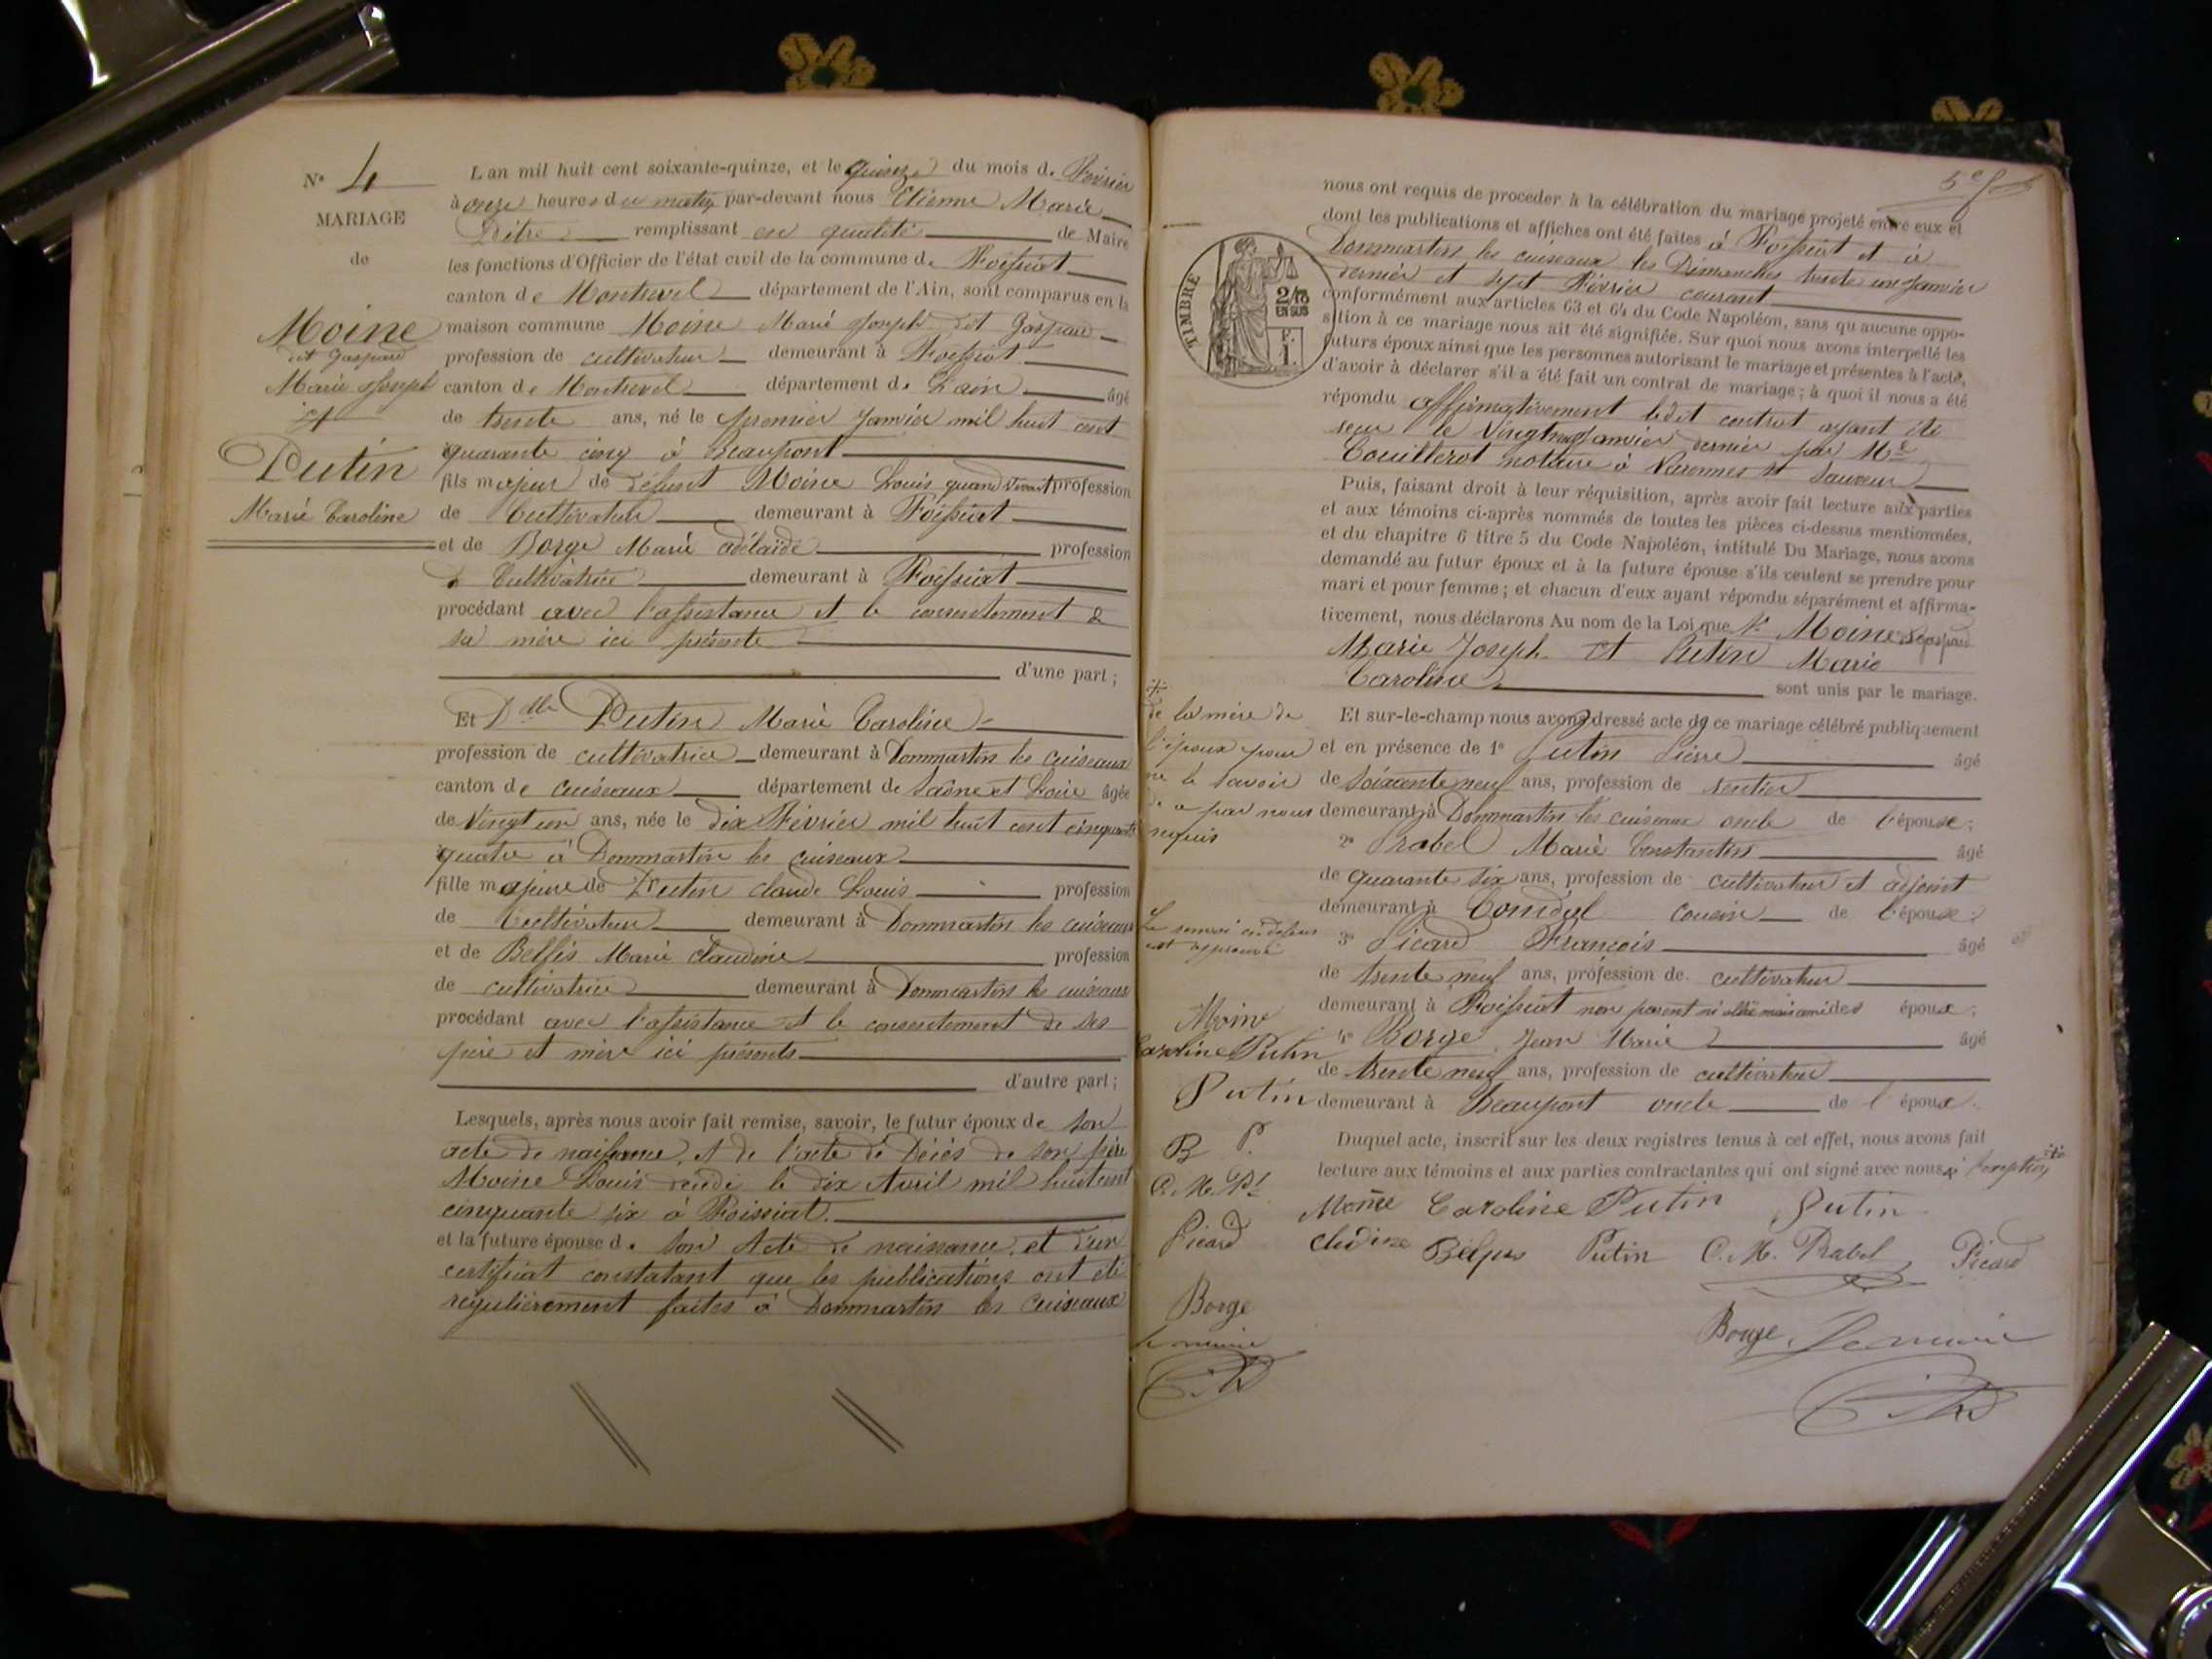 N° 4
MARIAGE
de
Moine
dit Gaspard
Marie Joseph
et
Putin
Marie Caroline
L'an mil huit cent soixante-quinze, et le quinze du mois de Février
à onze heures du matin par-devant nous Etienne Marie
remplissant en qualité de Maire
les fonctions d'Officier de l'état civil de la commune de Foissiat
canton de Montrevel département de l'Ain, sont comparus en la
maison commune Moine Marie Joseph dit Gaspard
profession de cultivateur demeurant à Foissiat
canton de Montrevel département de Lain âgé
de trente ans, né le premier Janvier mil huit cent
quarante cinq à Beaupont
fils majeur de défunt Moine Louis quand vivait profession
de Cultivateur demeurant à Foissiat
et de Borge Marie adélaïde profession
de Cultivatrice demeurant à Foissiat
procédant avec l'assistance et le consentement de
sa mère ici présente
d'une part ;
Et Dlle Putin Marie Caroline
profession de cultivatrice demeurant à Dommartin les cuiseaux
canton de cuiseaux département de Saône et Loire âgée
de Vingt un ans, née le dix Février mil huit cent cinquante
quatre à Dommartin les cuiseaux
fille majeure de Putin claude Louis profession
de Cultivateur demeurant à Dommartin les cuiseaux
et de Marie claudine profession
de cultivatrice demeurant à Dommartin les cuiseaux
procédant avec l'assistance et le consentement de ses
père et mère ici présents
d'autre part ;
Lesquels, après nous avoir fait remise, savoir, le futur époux de son
acte de naissance, et de l'acte de Décès de son père
Moine Louis décédé le dix Avril mil huit cent
cinquante six à Foissiat.
et la future épouse de son Acte de naissance, et d'un
certificat constatant que les publications ont été
régulièrement faites à Dommartin les Cuiseaux
nous ont requis de procéder à la célébration du mariage projeté entre eux et
dont les publications et affiches ont été faites à Foissiat et à
Dommartin les cuiseaux les Dimanches trente un Janvier
dernier et sept Février courant
TIMBRE
2/10
EN SUS
F.
1.
conformément aux articles 63 et 64 du Code Napoléon, sans qu'aucune oppo-
sition à ce mariage nous ait été signifiée. Sur quoi nous avons interpellé les
futurs époux ainsi que les personnes autorisant le mariage et présentes à l'acte,
d'avoir à déclarer s'il a été fait un contrat de mariage ; à quoi il nous a été
répondu affirmativement ledit contrat ayant été
reçu le Janvier dernier par Me
Couillerot notaire à Varennes St Sauveur
Puis, faisant droit à leur réquisition, après avoir fait lecture aux parties
et aux témoins ci-après nommés de toutes les pièces ci-dessus mentionnées,
et du chapitre 6 titre 5 du Code Napoléon, intitulé Du Mariage, nous avons
demandé au futur époux et à la future épouse s'ils veulent se prendre pour
mari et pour femme ; et chacun d'eux ayant répondu séparément et affirma-
tivement, nous déclarons Au nom de la Loi que Moine dit gaspard
Marie Joseph et Putin Marie
Caroline sont unis par le mariage.
Et sur-le-champ nous avons dressé acte de ce mariage célébré publiquement
et en présence de 1° Putin Pierre âgé
de soixante neuf ans, profession de rentier
demeurant à Dommartin les cuiseaux oncle de l'épouse ;
2° Prabel Marie Constantin âgé
de quarante six ans, profession de cultivateur et adjoint
demeurant à Condal cousin de l'épouse ;
3° Picard François âgé
de trente neuf ans, profession de cultivateur
demeurant à Foissiat non parent ni allié mais ami des époux ;
4° Borge Jean Marie âgé
de trente neuf ans, profession de cultivateur
demeurant à Beaupont oncle de l'époux.
Duquel acte, inscrit sur les deux registres tenus à cet effet, nous avons fait
lecture aux témoins et aux parties contractantes qui ont signé avec nous à l'exception
de la mère de
l'époux pour
ne le savoir
de ce par nous
requis
Le renvoi ci-dessus
est approuvé
Moine
Caroline Putin
Putin
B P.
C. M. P.
Picard
Borge
Le maire
Moine Caroline Putin Putin
Putin C. M. Prabel Picard
Borge Le maire